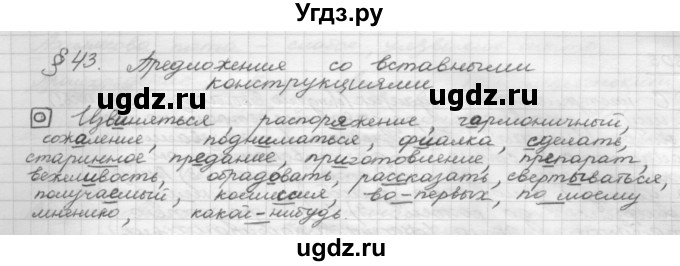 Угдз.ру
§ 43. Предложения со вставными
конструкциями
ugdz.ru ugdz.ru
О Извиняться, распоряжение, гармоничный,
сожаление, подниматься, фиалка, сделать,
старинное, предание, приготовление, препарат,
вежливость, обрадовать, рассказать, свертываться,
получаемый, комиссия, во-первых, по моему
мнению, какой-нибудь.
ugdz.ru ugdz.ru